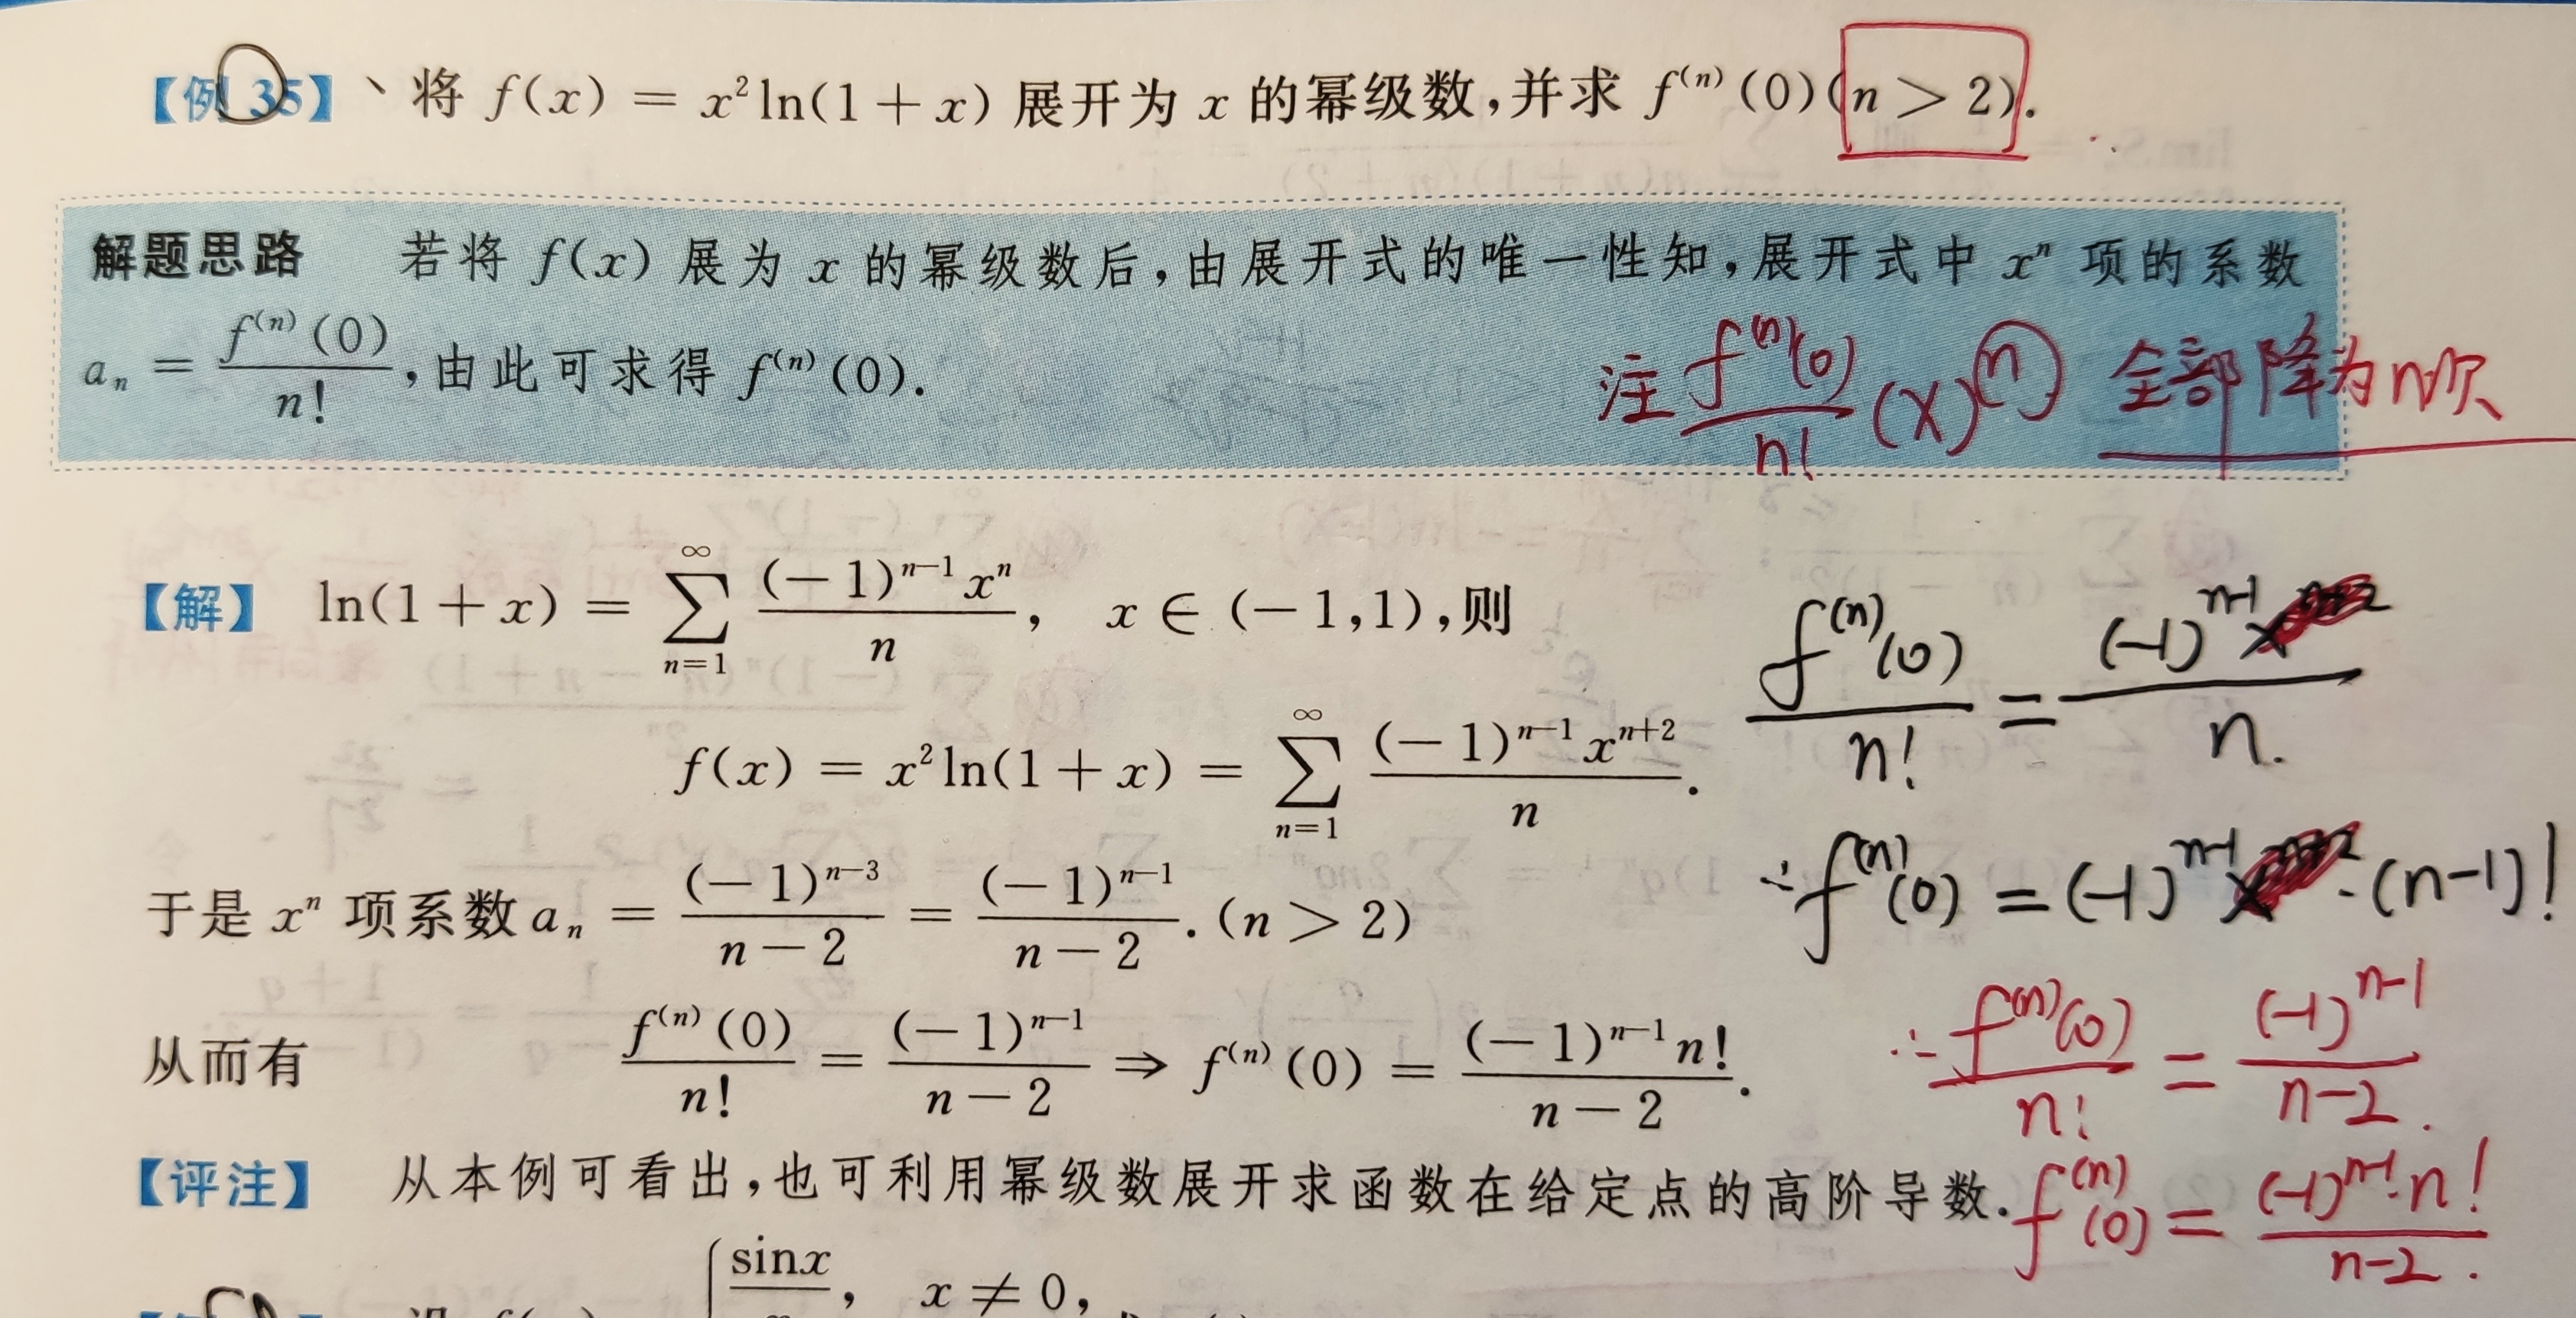 【例 35】、将 f(x) = x²ln(1+x) 展开为 x 的幂级数,并求 f⁽ⁿ⁾(0)(n > 2).
解题思路 若将 f(x) 展为 x 的幂级数后,由展开式的唯一性知,展开式中 xⁿ 项的系数
aₙ = f⁽ⁿ⁾(0)/n!,由此可求得 f⁽ⁿ⁾(0).
注 f⁽ⁿ⁾(0)/n! (x)ⁿ 全部降为n次
【解】 ln(1+x) = ∑_{n=1}^{∞} (−1)ⁿ⁻¹xⁿ/n, x ∈ (−1,1),则
f⁽ⁿ⁾(0)/n! = (-1)ⁿ⁻¹/n.
f(x) = x²ln(1+x) = ∑_{n=1}^{∞} (−1)ⁿ⁻¹xⁿ⁺²/n.
于是 xⁿ 项系数 aₙ = (−1)ⁿ⁻³/(n−2) = (−1)ⁿ⁻¹/(n−2).(n > 2)
∴f⁽ⁿ⁾(0) = (-1)ⁿ⁻¹·(n-1)!
从而有 f⁽ⁿ⁾(0)/n! = (−1)ⁿ⁻¹/(n−2) ⇒ f⁽ⁿ⁾(0) = (−1)ⁿ⁻¹n!/(n−2).
∴ f⁽ⁿ⁾(0)/n! = (-1)ⁿ⁻¹/(n-2).
【评注】 从本例可看出,也可利用幂级数展开求函数在给定点的高阶导数.
f⁽ⁿ⁾(0) = (-1)ⁿ⁻¹·n!/(n-2).
sinx, x ≠ 0,